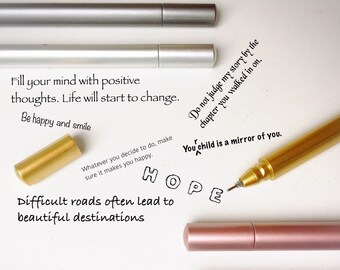 Fill your mind with positive
thoughts. Life will start to change.
Be happy and smile
Do not judge my story by the
chapter you walked in on.
Your child is a mirror of you.
Whatever you decide to do, make
sure it makes you happy.
HOPE
Difficult roads often lead to
beautiful destinations